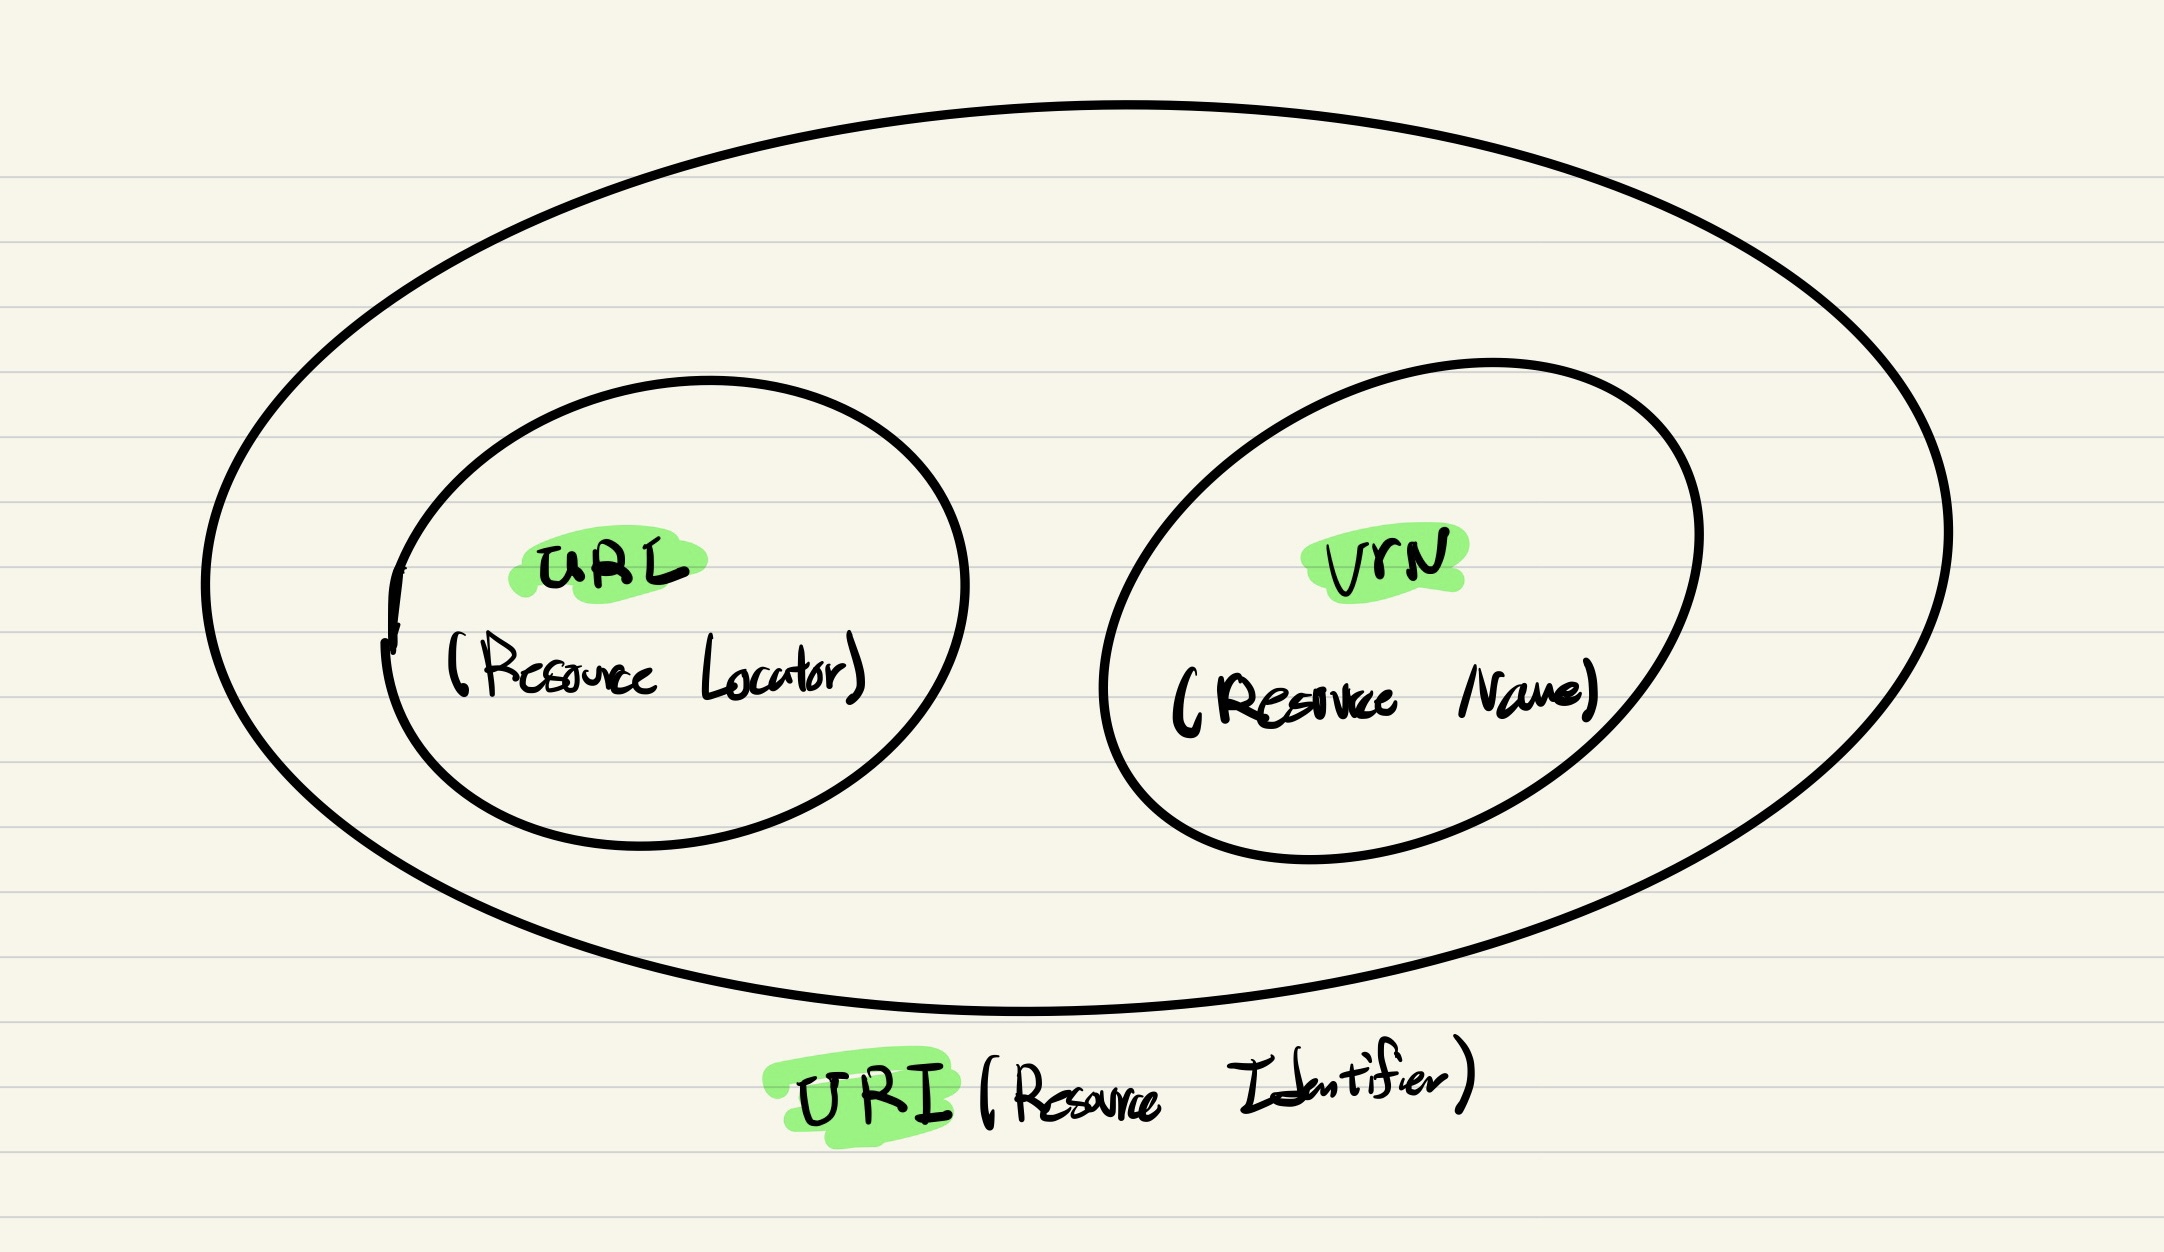 URL
(Resource Locator)
UrN
(Resource Name)
URI (Resource Identifier)